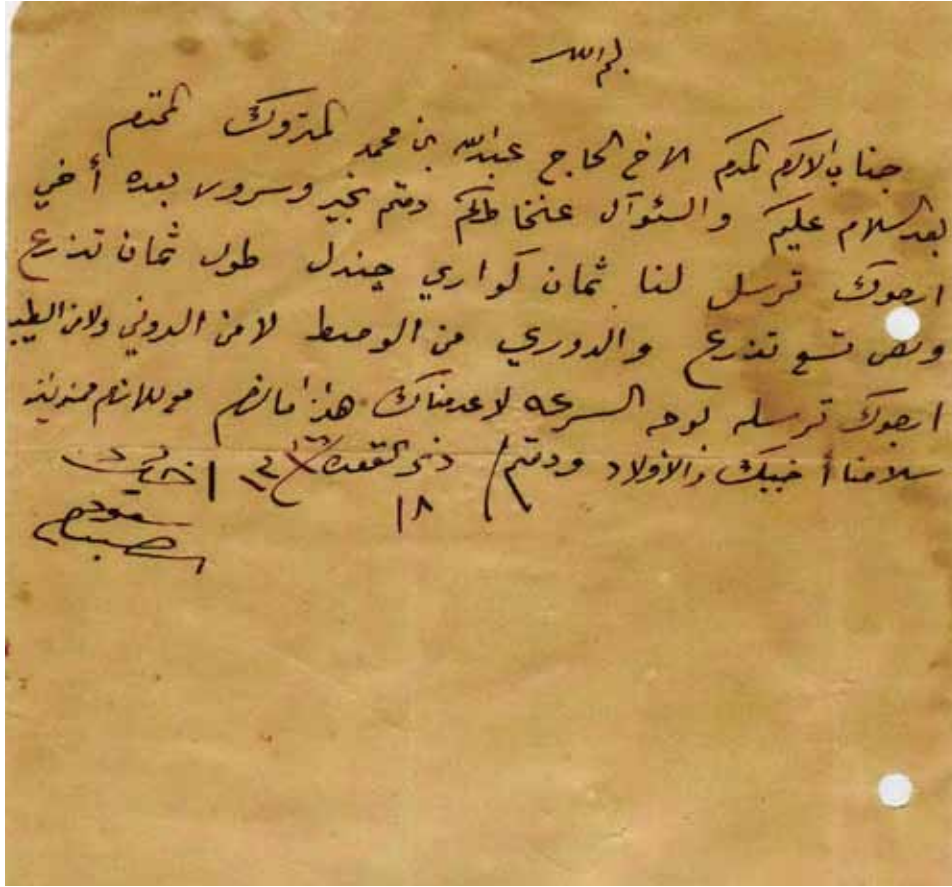 بسم الله
جناب الاكرم المكرم الاخ الحاج عبدالله بن محمد المتروك المحترم
بعد السلام عليكم والسئوآل عن خاطركم دمتم بخير وسرور بعده أخي
ارجوك ترسل لنا ثمان كواري چندل طول ثمان تذرع
ونص تسع تذرع والدوري من الوسط لا من الدوني ولا من الطيب
ارجوك ترسله بوجه السرعه لا عدمناك هذا ما لزم
سلامنا أخيك والأولاد ودمتم ذي القعدة
١٨